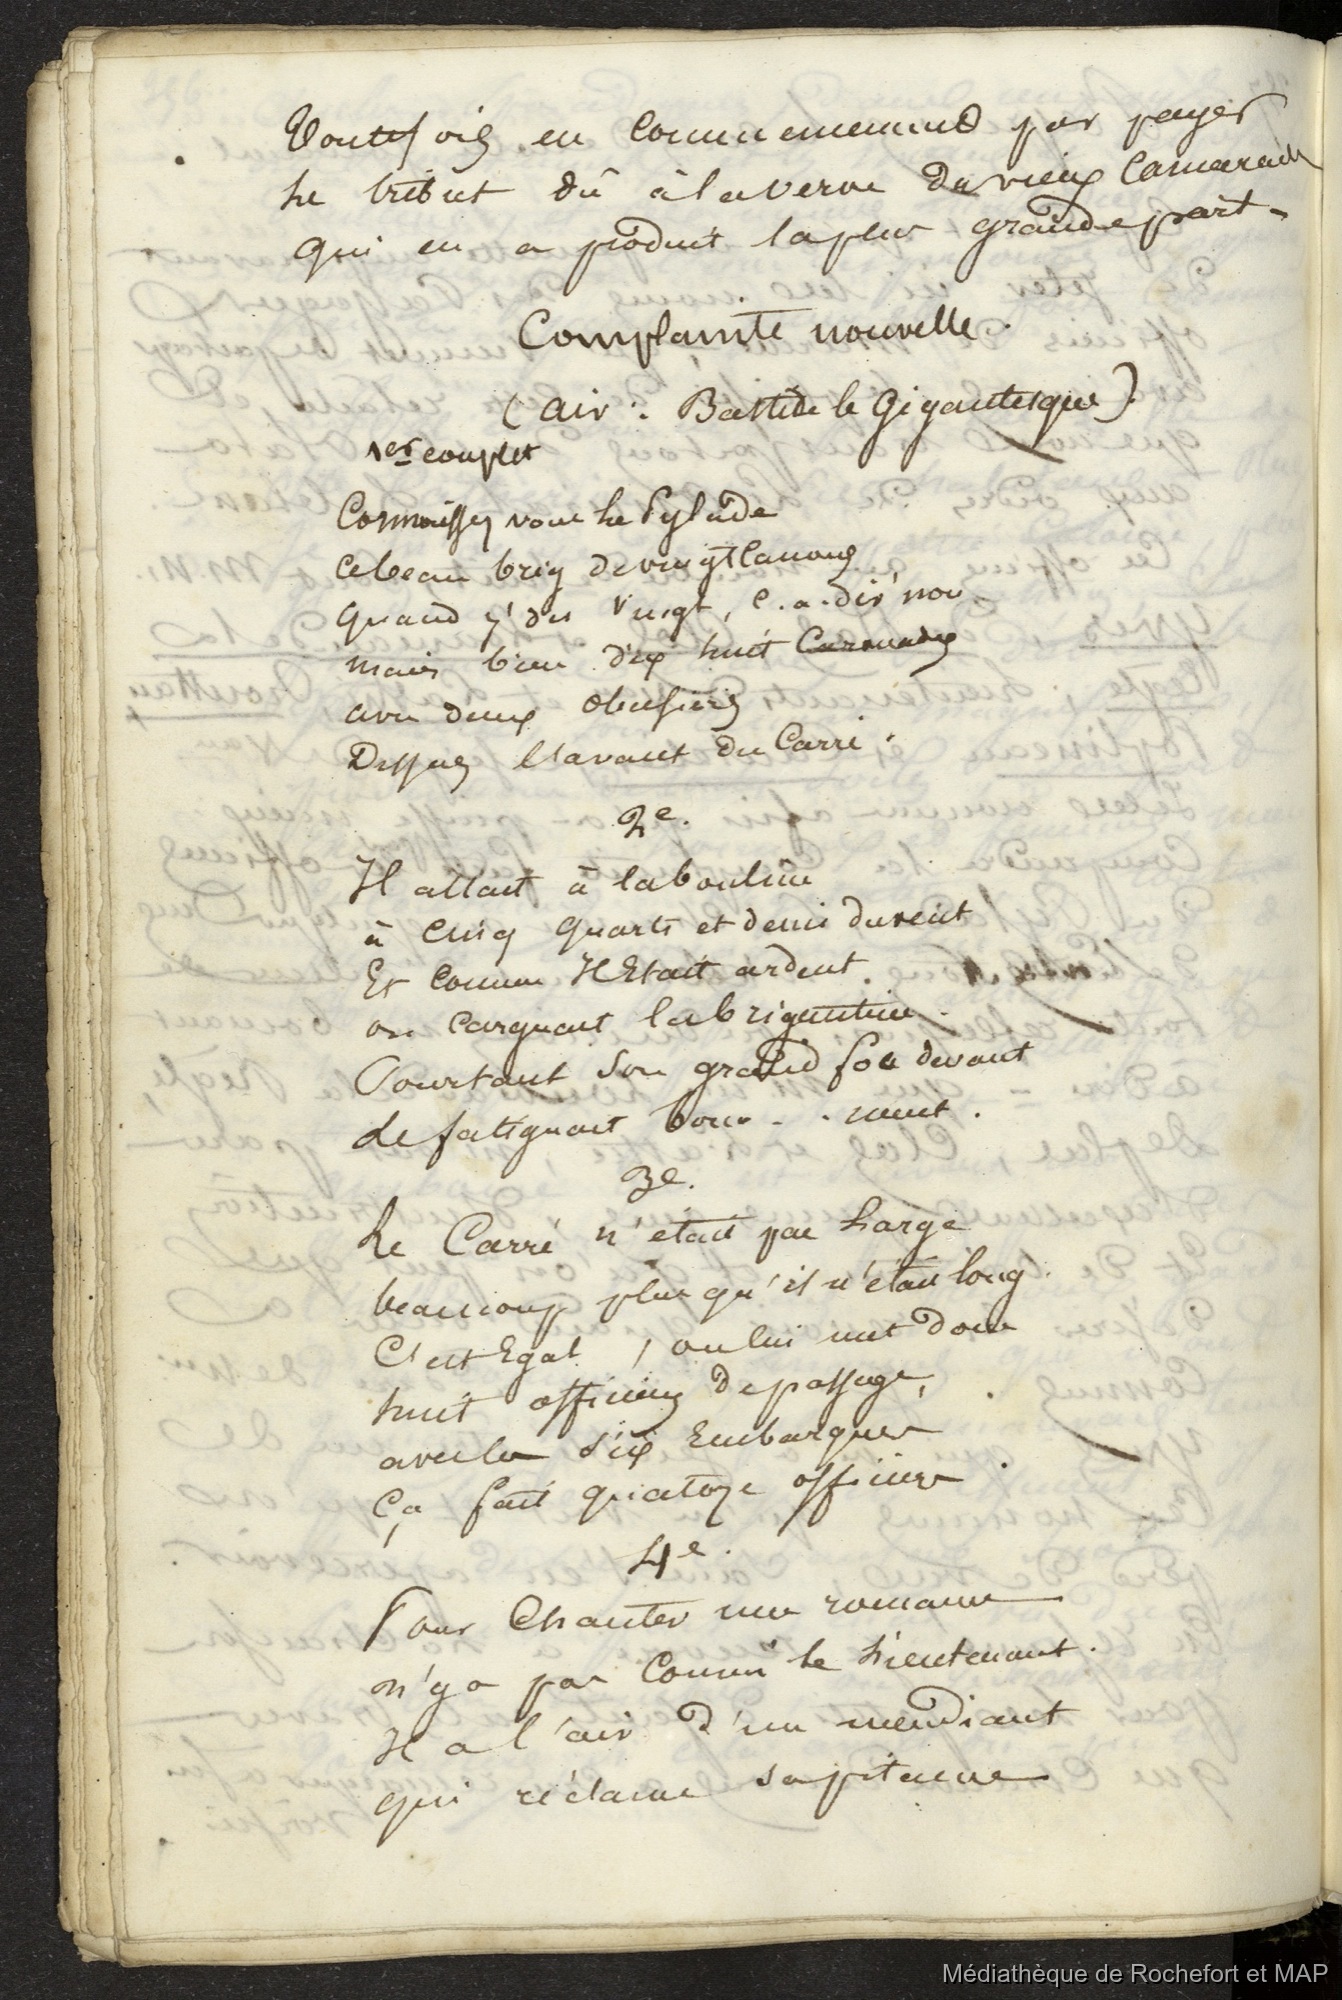 Toutefois en commencement par payer
le tribut dû à la verve du vieux Camarade
qui en a produit la plus grande part.
Complainte nouvelle.
(air : Bastide le Gigantesque)
1er couplet
Connaissez vous le Pylade
ce beau brig de vingt canons
quand j'dis vingt, c. a. dir' non
mais bien dix huit Caronades
avec deux obusiers
Dessus l'avant du Carré.
2e.
Il allait à la bouline
à cinq quarts et demi du vent
Et comme Il Etait ardent
on carguait la brigantine.
Pourtant son grand foc devant
le fatiguait bou.. ment.
3e.
Le Carré n'était pas Large
beaucoup plus qu'il n'était long.
C'est Egal, on lui met donc
huit officiers de passage,
avec les six Embarqués
Ça fait quatorze officiers.
4e.
Pour Chanter une romance
n'y a pas comm' le Lieutenant.
Il a l'air d'un mendiant
qui réclame sa pitance
Médiathèque de Rochefort et MAP